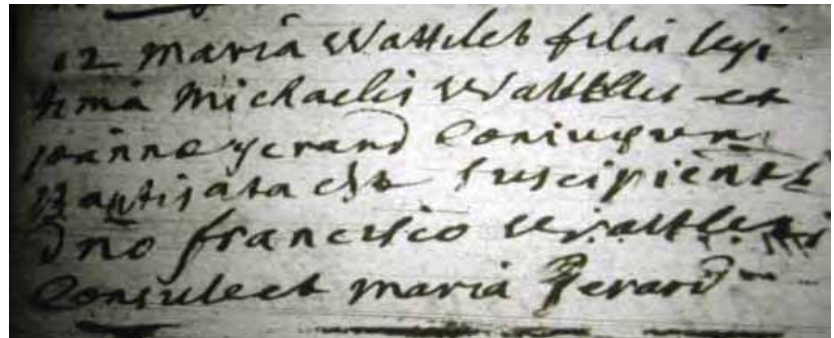 12 maria Wattlet filia legi
tima Michaelis Wattlet et
joanne gerard Coniugum
Baptisata est suscipiente
Dno francisco Wattlet
Consule et maria gerard